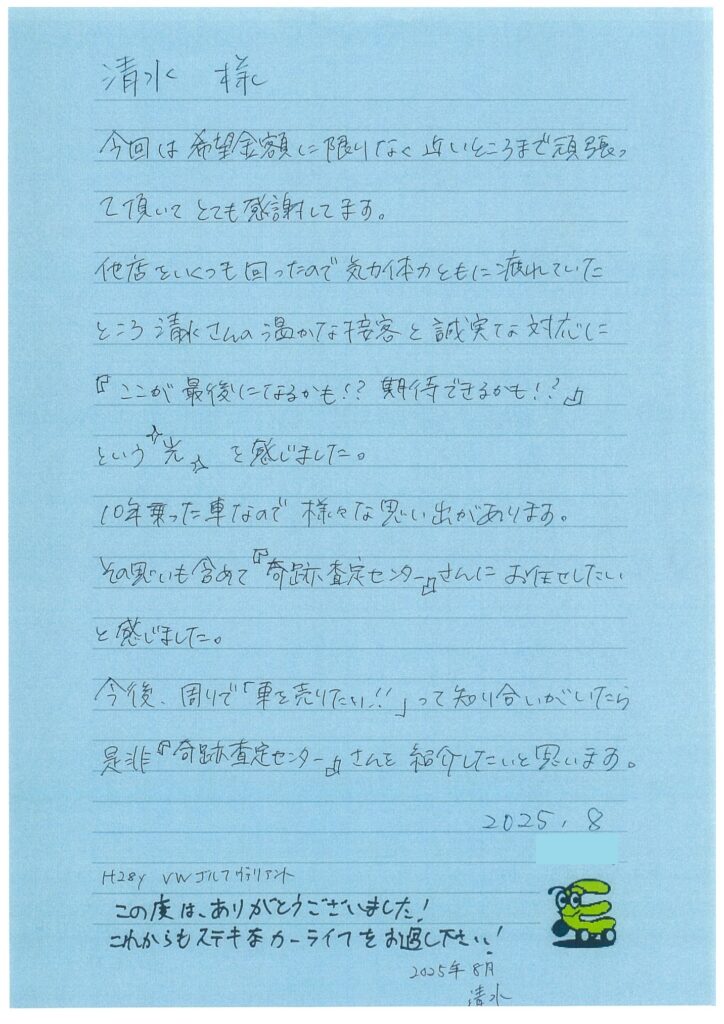 清水 様
今回は希望金額に限りなく近いところまで頑張っ
て頂いてとても感謝してます。
他店をいくつも回ったので気力体力ともに疲れていた
ところ清水さんの温かな接客と誠実な対応に
『ここが最後になるかも!? 期待できるかも!?』
という☆光☆を感じました。
10年乗った車なので様々な思い出があります。
その思いも含めて『奇跡査定センター』さんにお任せしたい
と感じました。
今後、周りで「車を売りたい!!」って知り合いがいたら
是非『奇跡査定センター』さんを紹介したいと思います。
2025, 8
H28y VWゴルフヴァリアント
この度は、ありがとうございました!
これからもステキなカーライフをお過し下さい!
2025年8月
清水